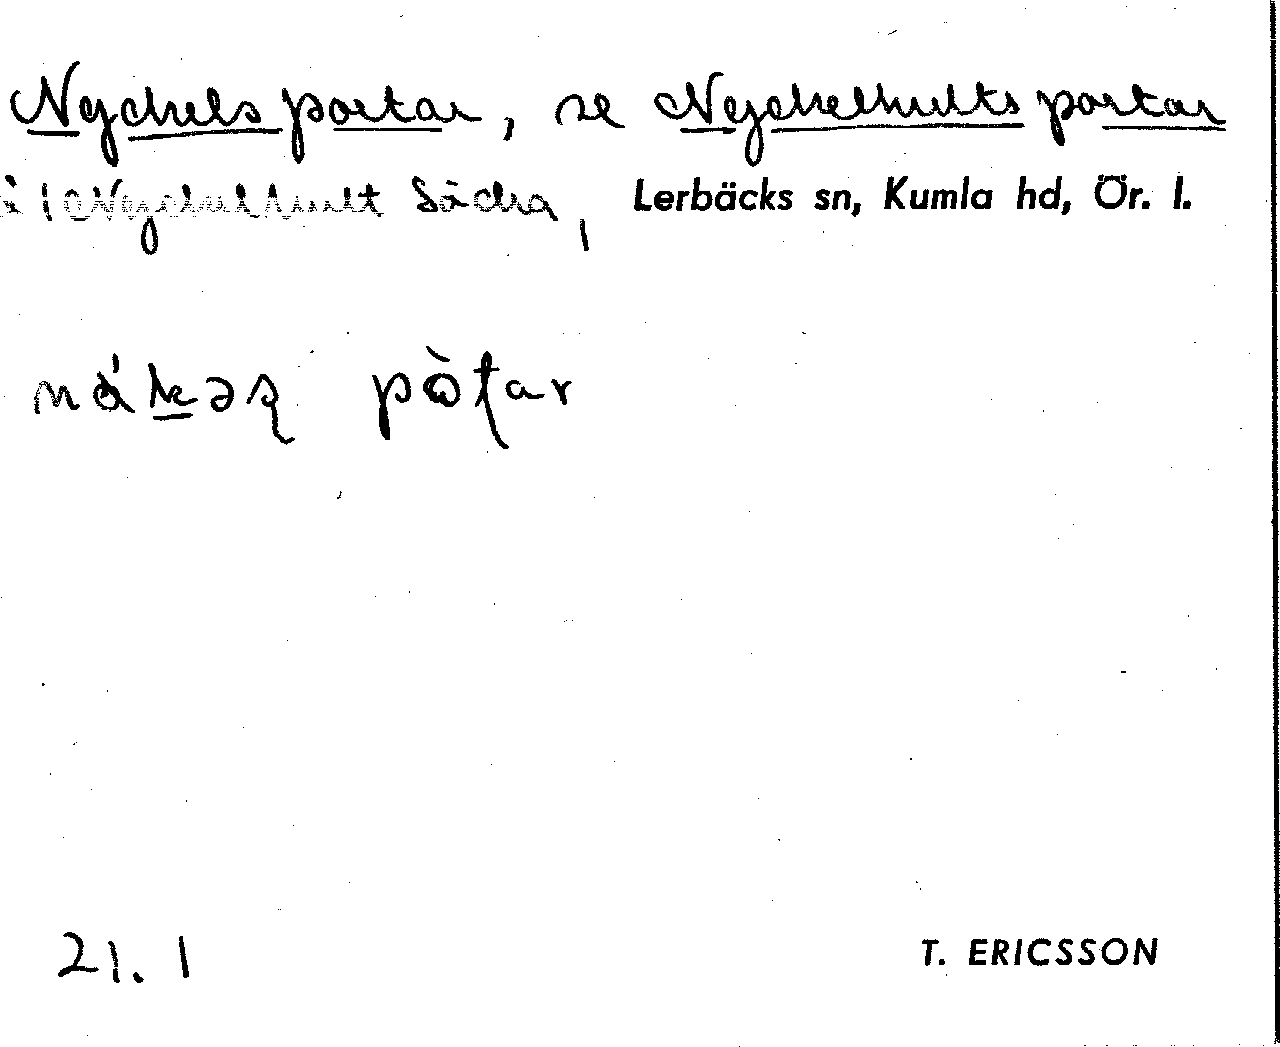 Nyckels portar, se Nyckelhults portar
å 1 Nyckelhult Säcka, Lerbäcks sn, Kumla hd, Ör. l.
21. 1
T. ERICSSON